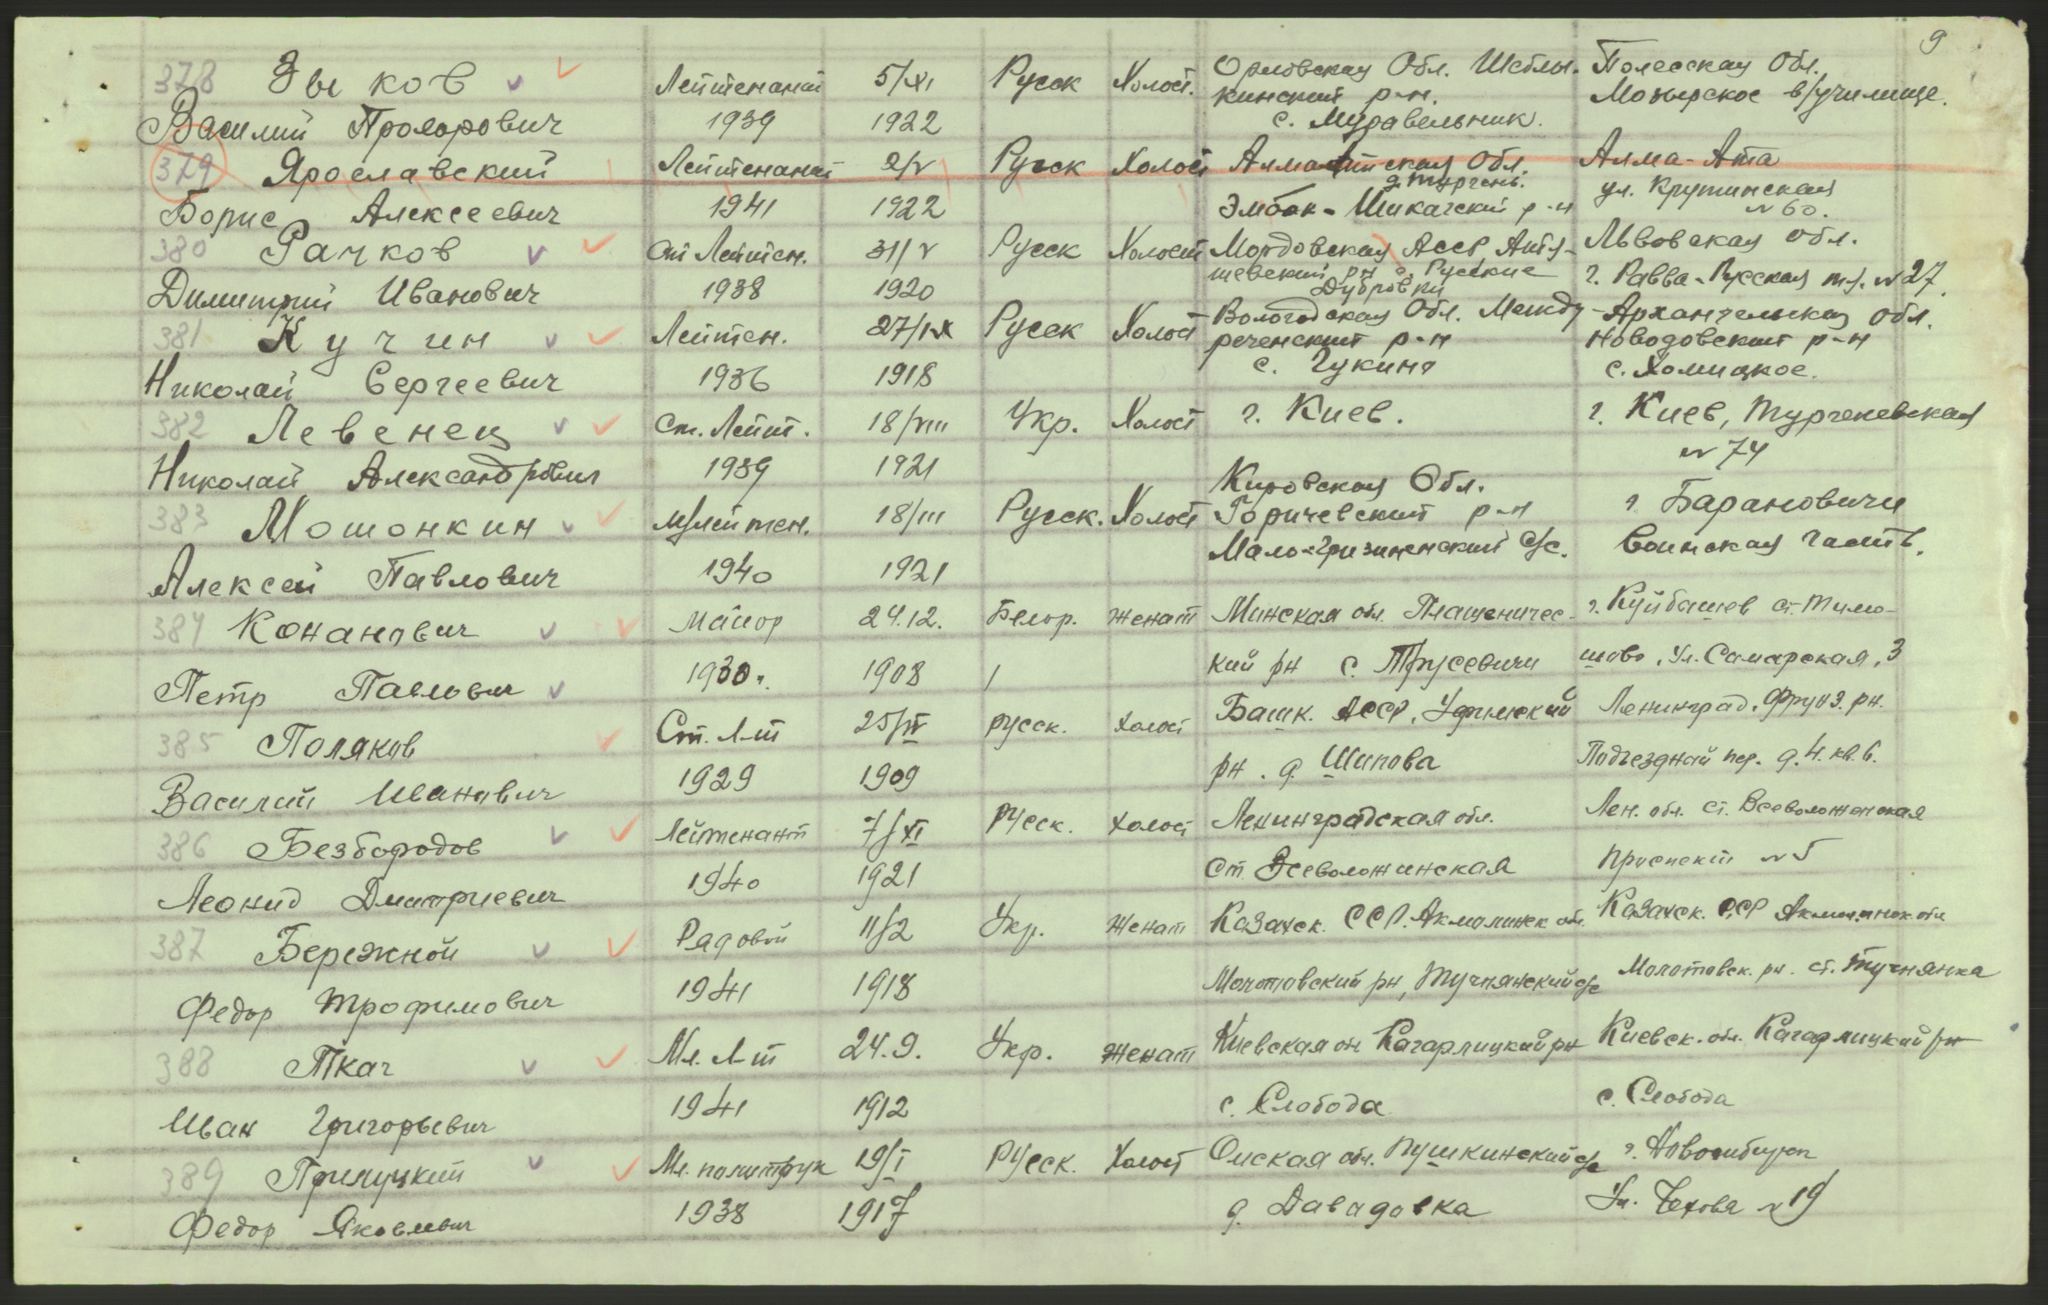 9
378 Зыков Лейтенант 5/XI Русск Холост. Орловская Обл. Шеблы- Полесская Обл.
кинский р-н. Мозырское в/училище.
Василий Прохорович 1939 1922 с. Муравельник.
379 Ярославский Лейтенант 2/V Русск Холост Алматинская Обл. Алма-Ата
д. Тургень. ул. Крутинская
Борис Алексеевич 1941 1922 р-н № 60.
380 Рачков Ст Лейтен. 31/V Русск Холост Мордовская Асср Атю- Львовская Обл.
шевский рн с. Русские г. Равва-Русская № 27.
Димитрий Иванович 1938 1920 Дубровки
381 Кучин Лейтен. 27/IX Русск Холост Вологодская Обл. Между- Архангельская Обл.
реченский р-н Новодовский р-н
Николай Сергеевич 1936 1918 с. Чукино с. Холмицкое.
382 Левенец Ст. Лейт. 18/VIII Укр. Холост г. Киев. г. Киев, Тургеневская
№ 74
Николай Александрович 1939 1921
Кировская Обл.
383 Мошонкин м/лейтен. 18/III Русск. Холост Горичевский р-н г. Барановичи
Мало-Гризиненский с/с. Воинская часть.
Алексей Павлович 1940 1921
384 Конанович Майор 24.12. Белор. женат Минская обл. Плащеничес- г. Куйбашев ст. Тима-
Петр Павлович 1930 г. 1908 кий рн с. Трусевичи шово, Ул. Самарская, 3
385 Поляков Ст. Л-т 25/IV русск. холост Башк. АССР, Уфимский Ленинград, Фрунз. рн.
Василий Иванович 1929 1909 рн. д. Шипова Подъездной пер. д. 4. кв. 6.
386 Безбородов Лейтенант 7/XI Русск. холост Ленинградская обл. Лен. обл. ст. Всеволоженская
Леонид Дмитриевич 1940 1921 ст. Всеволожинская проспект № 5
387 Бережной Рядовой 11/2 Укр. Женат Казахск. ССР. Акмолинск обл. Казахск. ССР Акмолинск обл
Федор Трофимович 1941 1918 Молотовский рн, Тучнянский с/с Молотовск. рн. ст. Тучнянка
388 Ткач Мл. Л-т 24.9. Укр. женат Киевская обл Кагарлицкий рн Киевск. обл. Кагарлицкий рн
Иван Григорьевич 1941 1912 с. Слобода с. Слобода
389 Прилуцкий Мл. политрук 19/I Русск. Холост Омская обл. Пушкинский с/с г. Новосибирск
Федор Яковлевич 1938 1917 д. Давадовка Ул. Чехова № 19